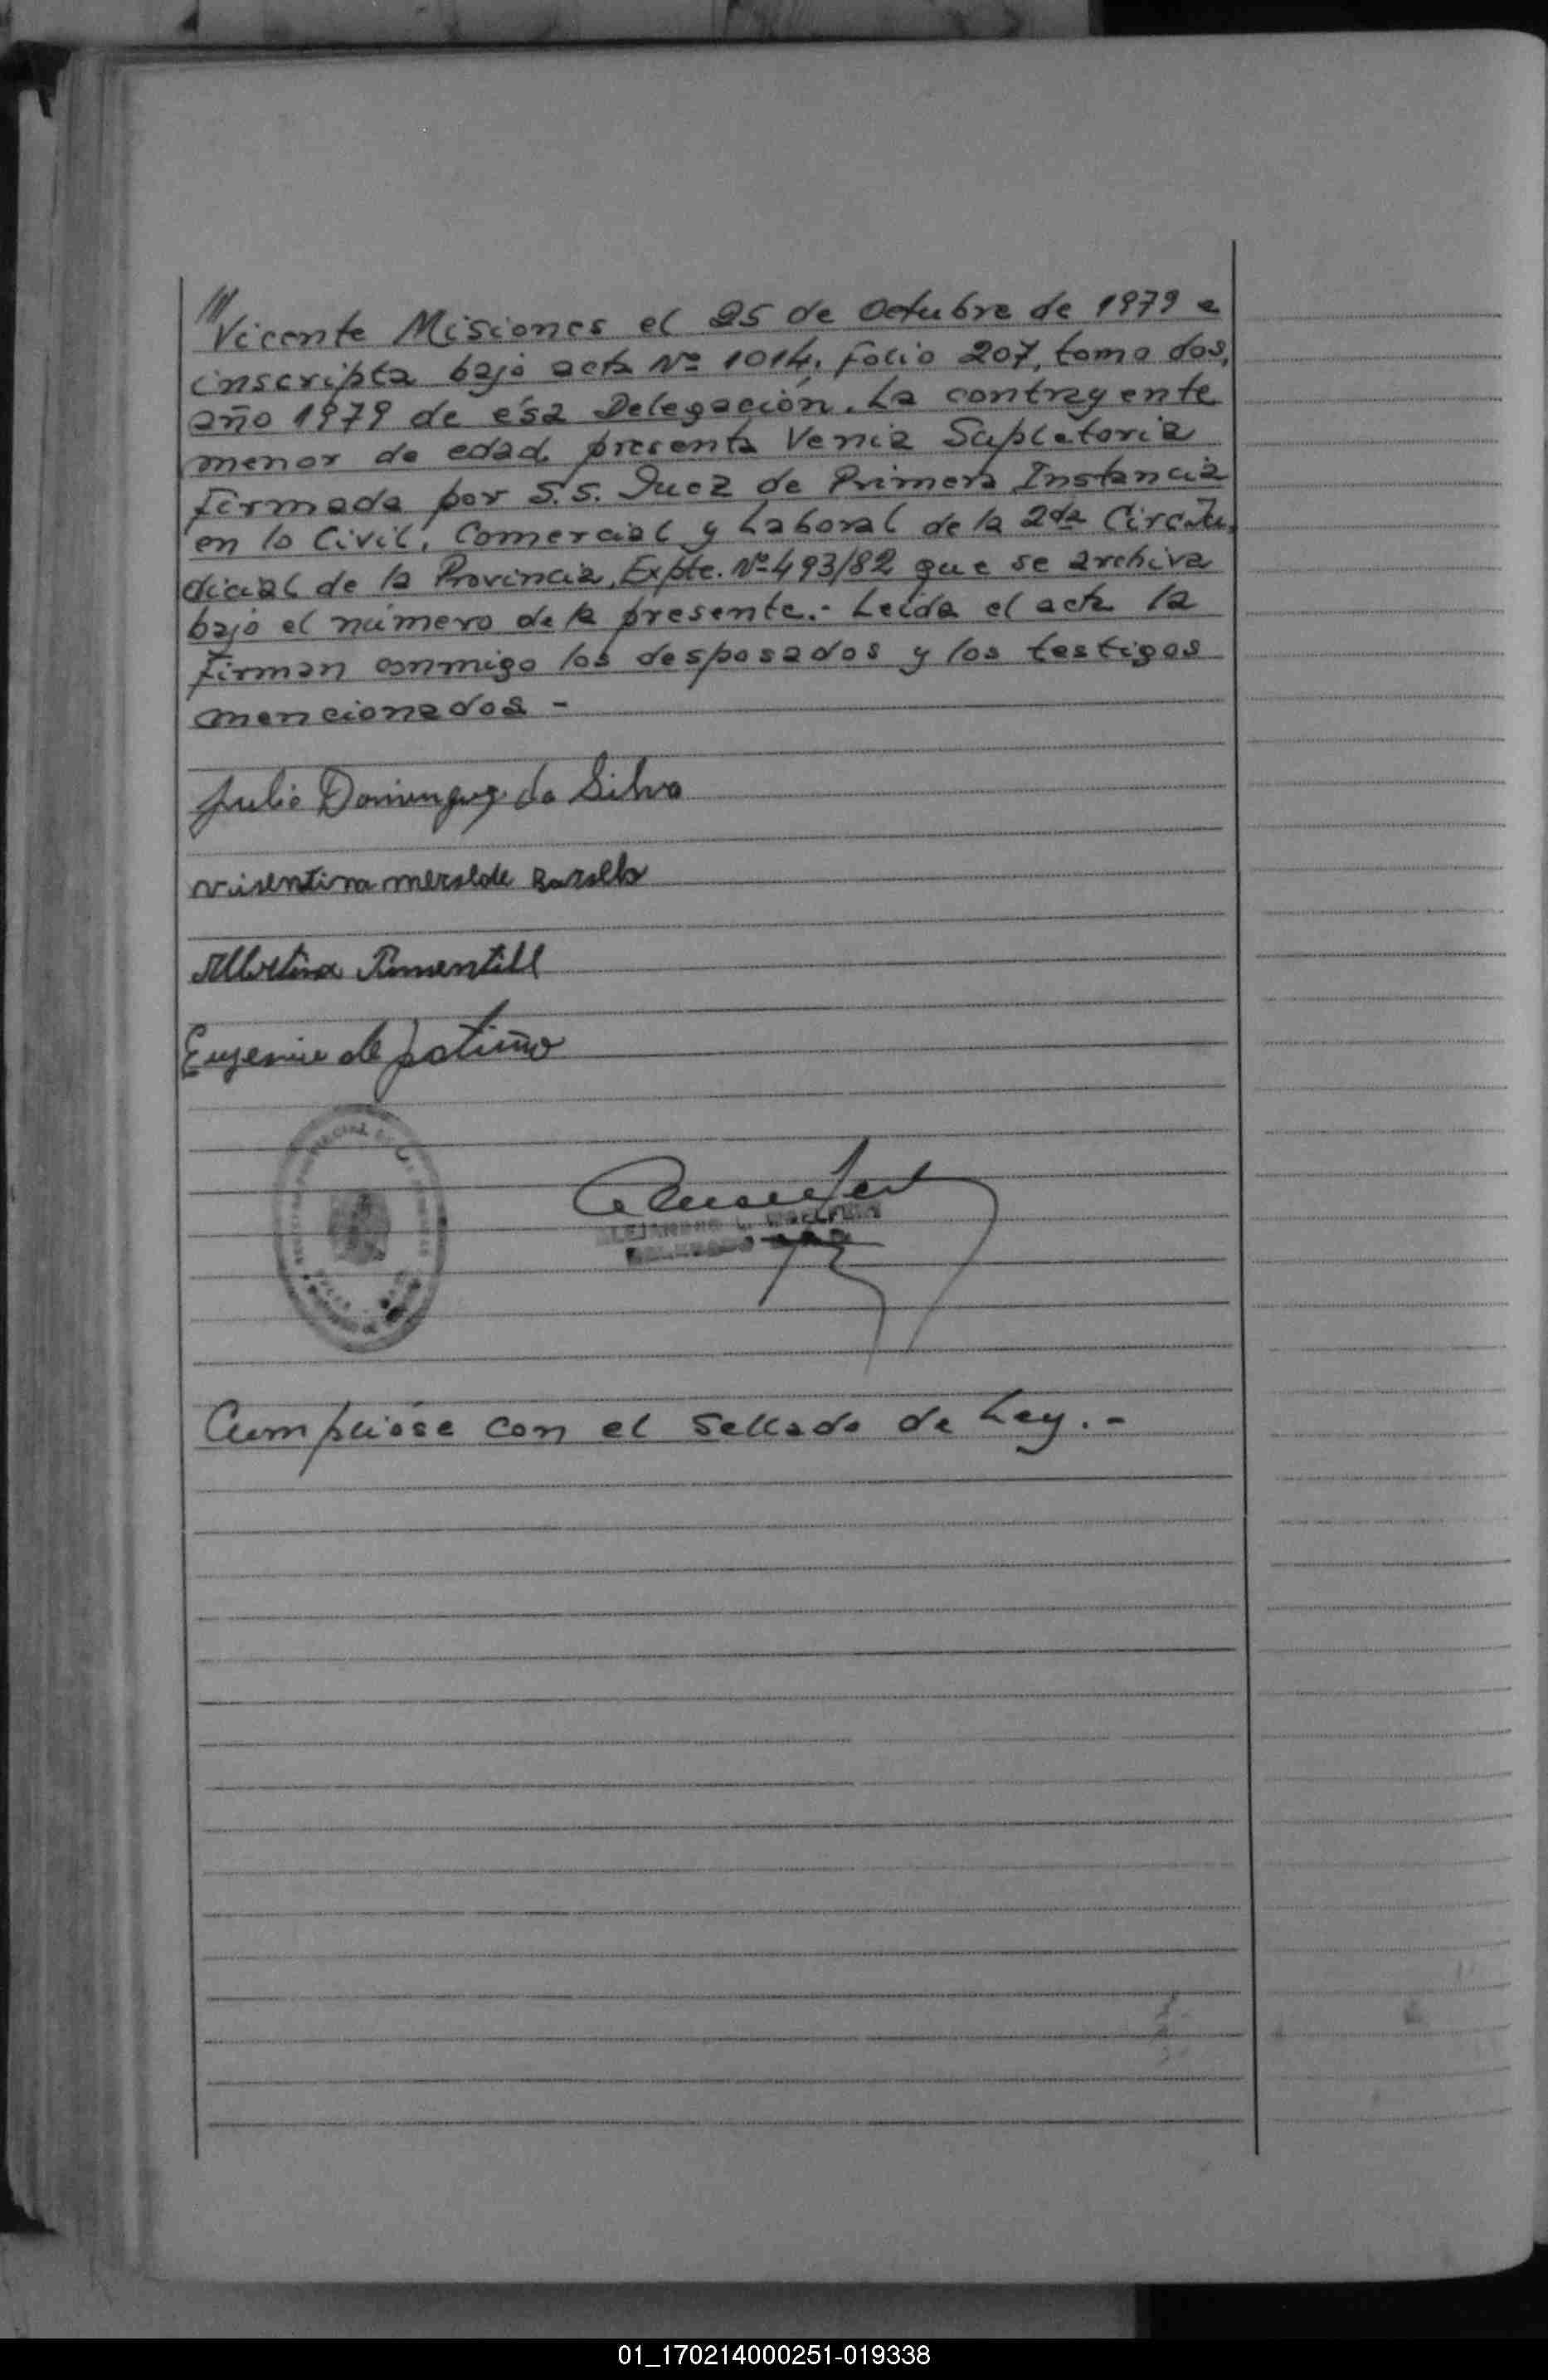 /// Vicente Misiones el 25 de Octubre de 1979 e
inscripta bajo acta Nº 1014, folio 207, tomo dos,
año 1979 de ésa Delegación. La contrayente
menor de edad, presenta Venia Supletoria
firmada por S.S. Juez de Primera Instancia
en lo Civil, Comercial y Laboral de la 2da Circ. Ju-
dicial de la Provincia, Expte. Nº 493/82 que se archiva
bajo el número de la presente.- Leída el acta la
firman conmigo los desposados y los testigos
mencionados -
Julio Dominguez da Silva
Albertina Pimentill
Eugenia de patiño
Cumplióse con el Sellado de Ley.-
01_170214000251-019338